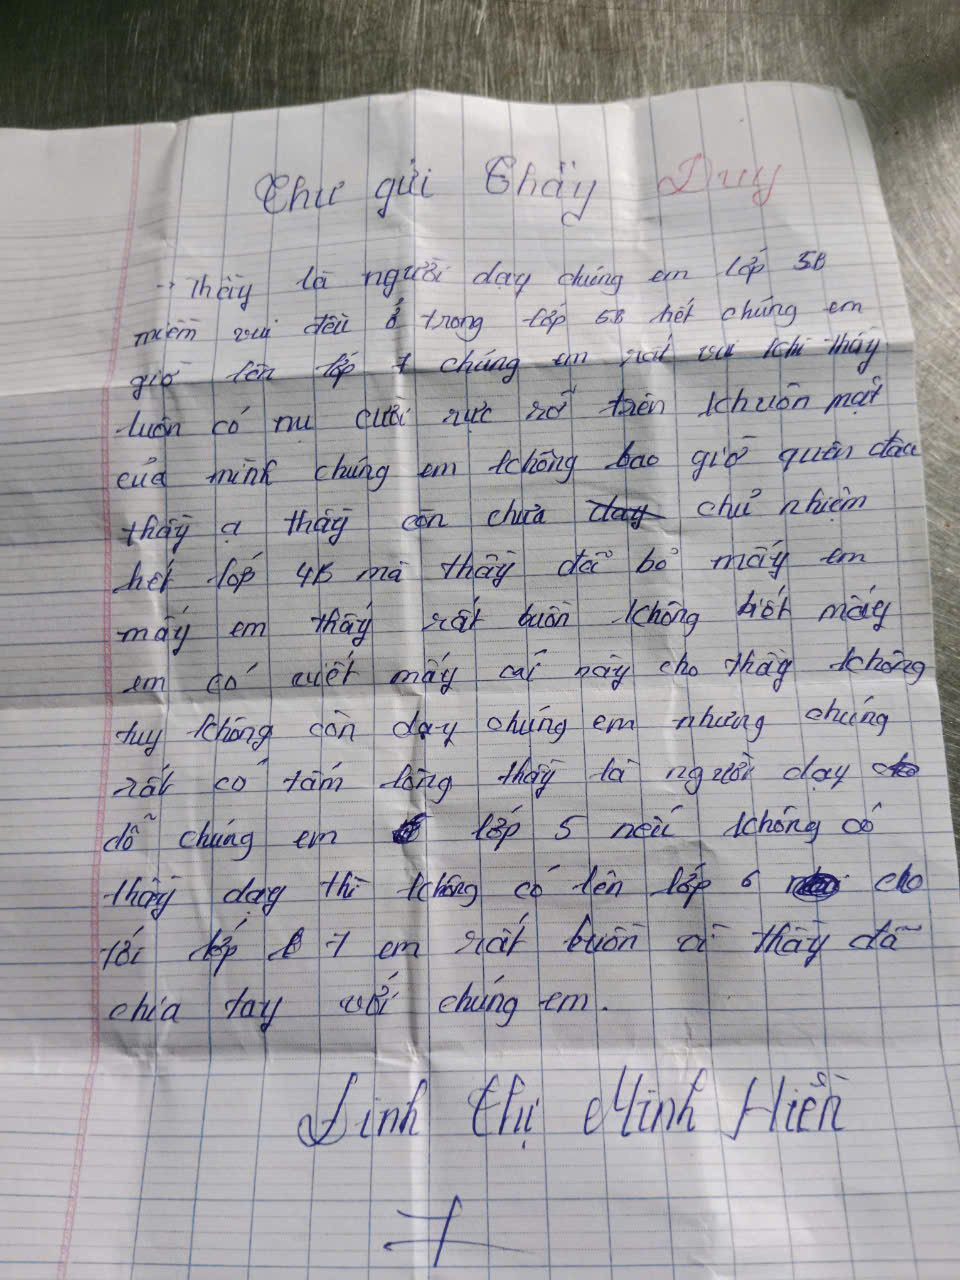 Thư gửi Thầy Duy
→ Thầy là người dạy chúng em lớp 5B
niềm vui đều ở trong lớp 5B hết chúng em
giờ lên lớp 7 chúng em rất vui khi thầy
luôn có nu cười rực rỡ trên khuôn mặt
của mình chúng em không bao giờ quên đâu
thầy ạ thầy còn chưa chủ nhiệm
hết lớp 4B mà thầy đã bỏ mấy em
mấy em thấy rất buồn không biết mấy
em có viết mấy cái này cho thầy không
tuy không còn dạy chúng em nhưng chúng
rất có tấm lòng thầy là người dạy
dỗ chúng em lớp 5 nếu không có
thầy dạy thì không có lên lớp 6 cho
tới lớp 7 em rất buồn vì thầy đã
chia tay với chúng em.
Đinh thị Minh Hiền
7